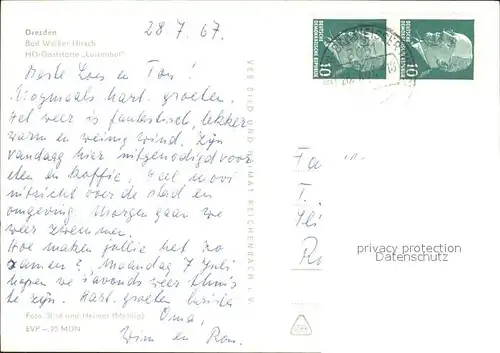 28.7.67.
Dresden
Bad Weißer Hirsch
HO-Gaststätte „Luisenhof"
Beste Loes en Ton!
Nogmaals hart. groeten.
Het weer is fantastisch, lekker
warm en weinig wind. Zijn
vandaag hier uitgenodigd voor
eten en koffie. Heel mooi
uitzicht over de stad en
omgeving. Morgen gaan we
weer zwemmen.
Hoe maken jullie het zo
samen? Maandag 7 Juli
hopen we 's avonds weer thuis
te zijn. Hart. groeten
Oma,
Foto: Bild und Heimat
EVP –,20 MDN
Wim en Ron.
VEB BILD UND HEIMAT REICHENBACH I. V.
DEUTSCHE DEMOKRATISCHE REPUBLIK
10
DEUTSCHE DEMOKRATISCHE REPUBLIK
10
Fa
T.
privacy protection
Datenschutz